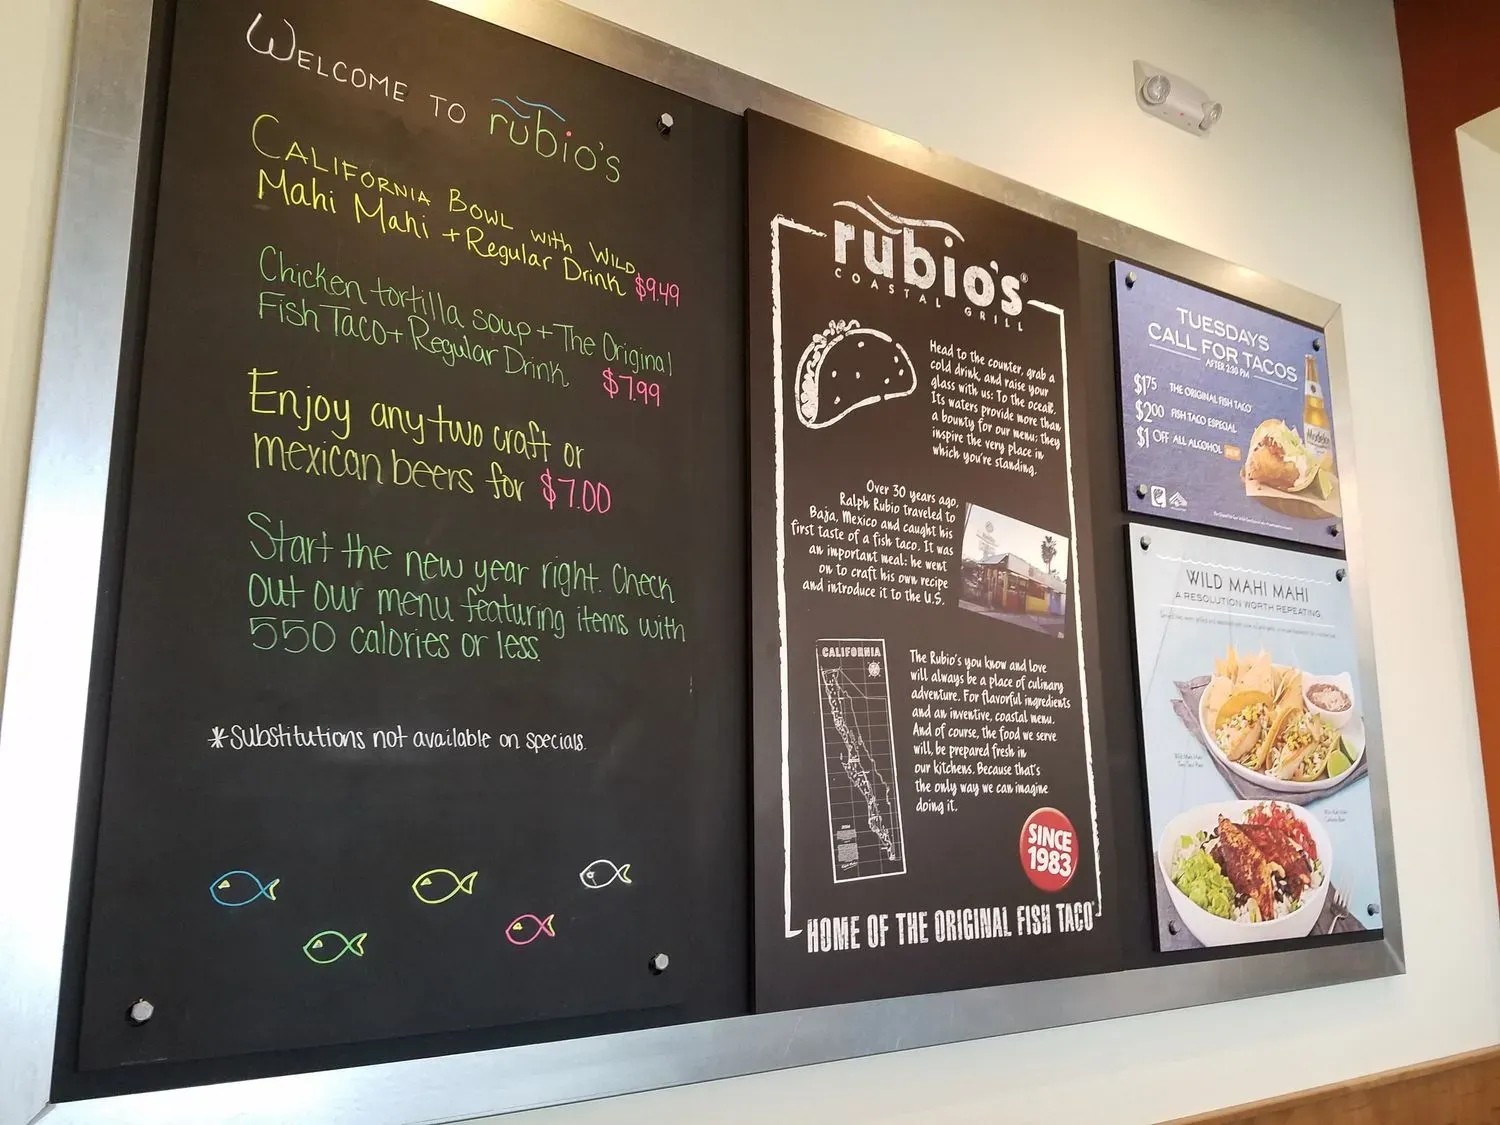 WELCOME TO rubio's
CALIFORNIA BOWL with WILD
Mahi Mahi + Regular Drink $9.49
Chicken tortilla soup + The Original
Fish Taco + Regular Drink $7.99
Enjoy any two craft or
mexican beers for $7.00
Start the new year right. Check
out our menu featuring items with
550 calories or less.
*Substitutions not available on specials.
rubio's®
COASTAL GRILL
Head to the counter, grab a
cold drink, and raise your
glass with us: To the ocean.
Its waters provide more than
a bounty for our menu; they
inspire the very place in
which you're standing.
Over 30 years ago,
Ralph Rubio traveled to
Baja, Mexico and caught his
first taste of a fish taco. It was
an important meal: he went
on to craft his own recipe
and introduce it to the U.S.
CALIFORNIA
The Rubio's you know and love
will always be a place of culinary
adventure. For flavorful ingredients
and an inventive, coastal menu.
And of course, the food we serve
will be prepared fresh in
our kitchens. Because that's
the only way we can imagine
doing it.
SINCE
1983
HOME OF THE ORIGINAL FISH TACO®
TUESDAYS
CALL FOR TACOS
AFTER 2:30 PM
$1.75 THE ORIGINAL FISH TACO®
$2.00 FISH TACO ESPECIAL
$1 OFF ALL ALCOHOL
Modelo
WILD MAHI MAHI
A RESOLUTION WORTH REPEATING.